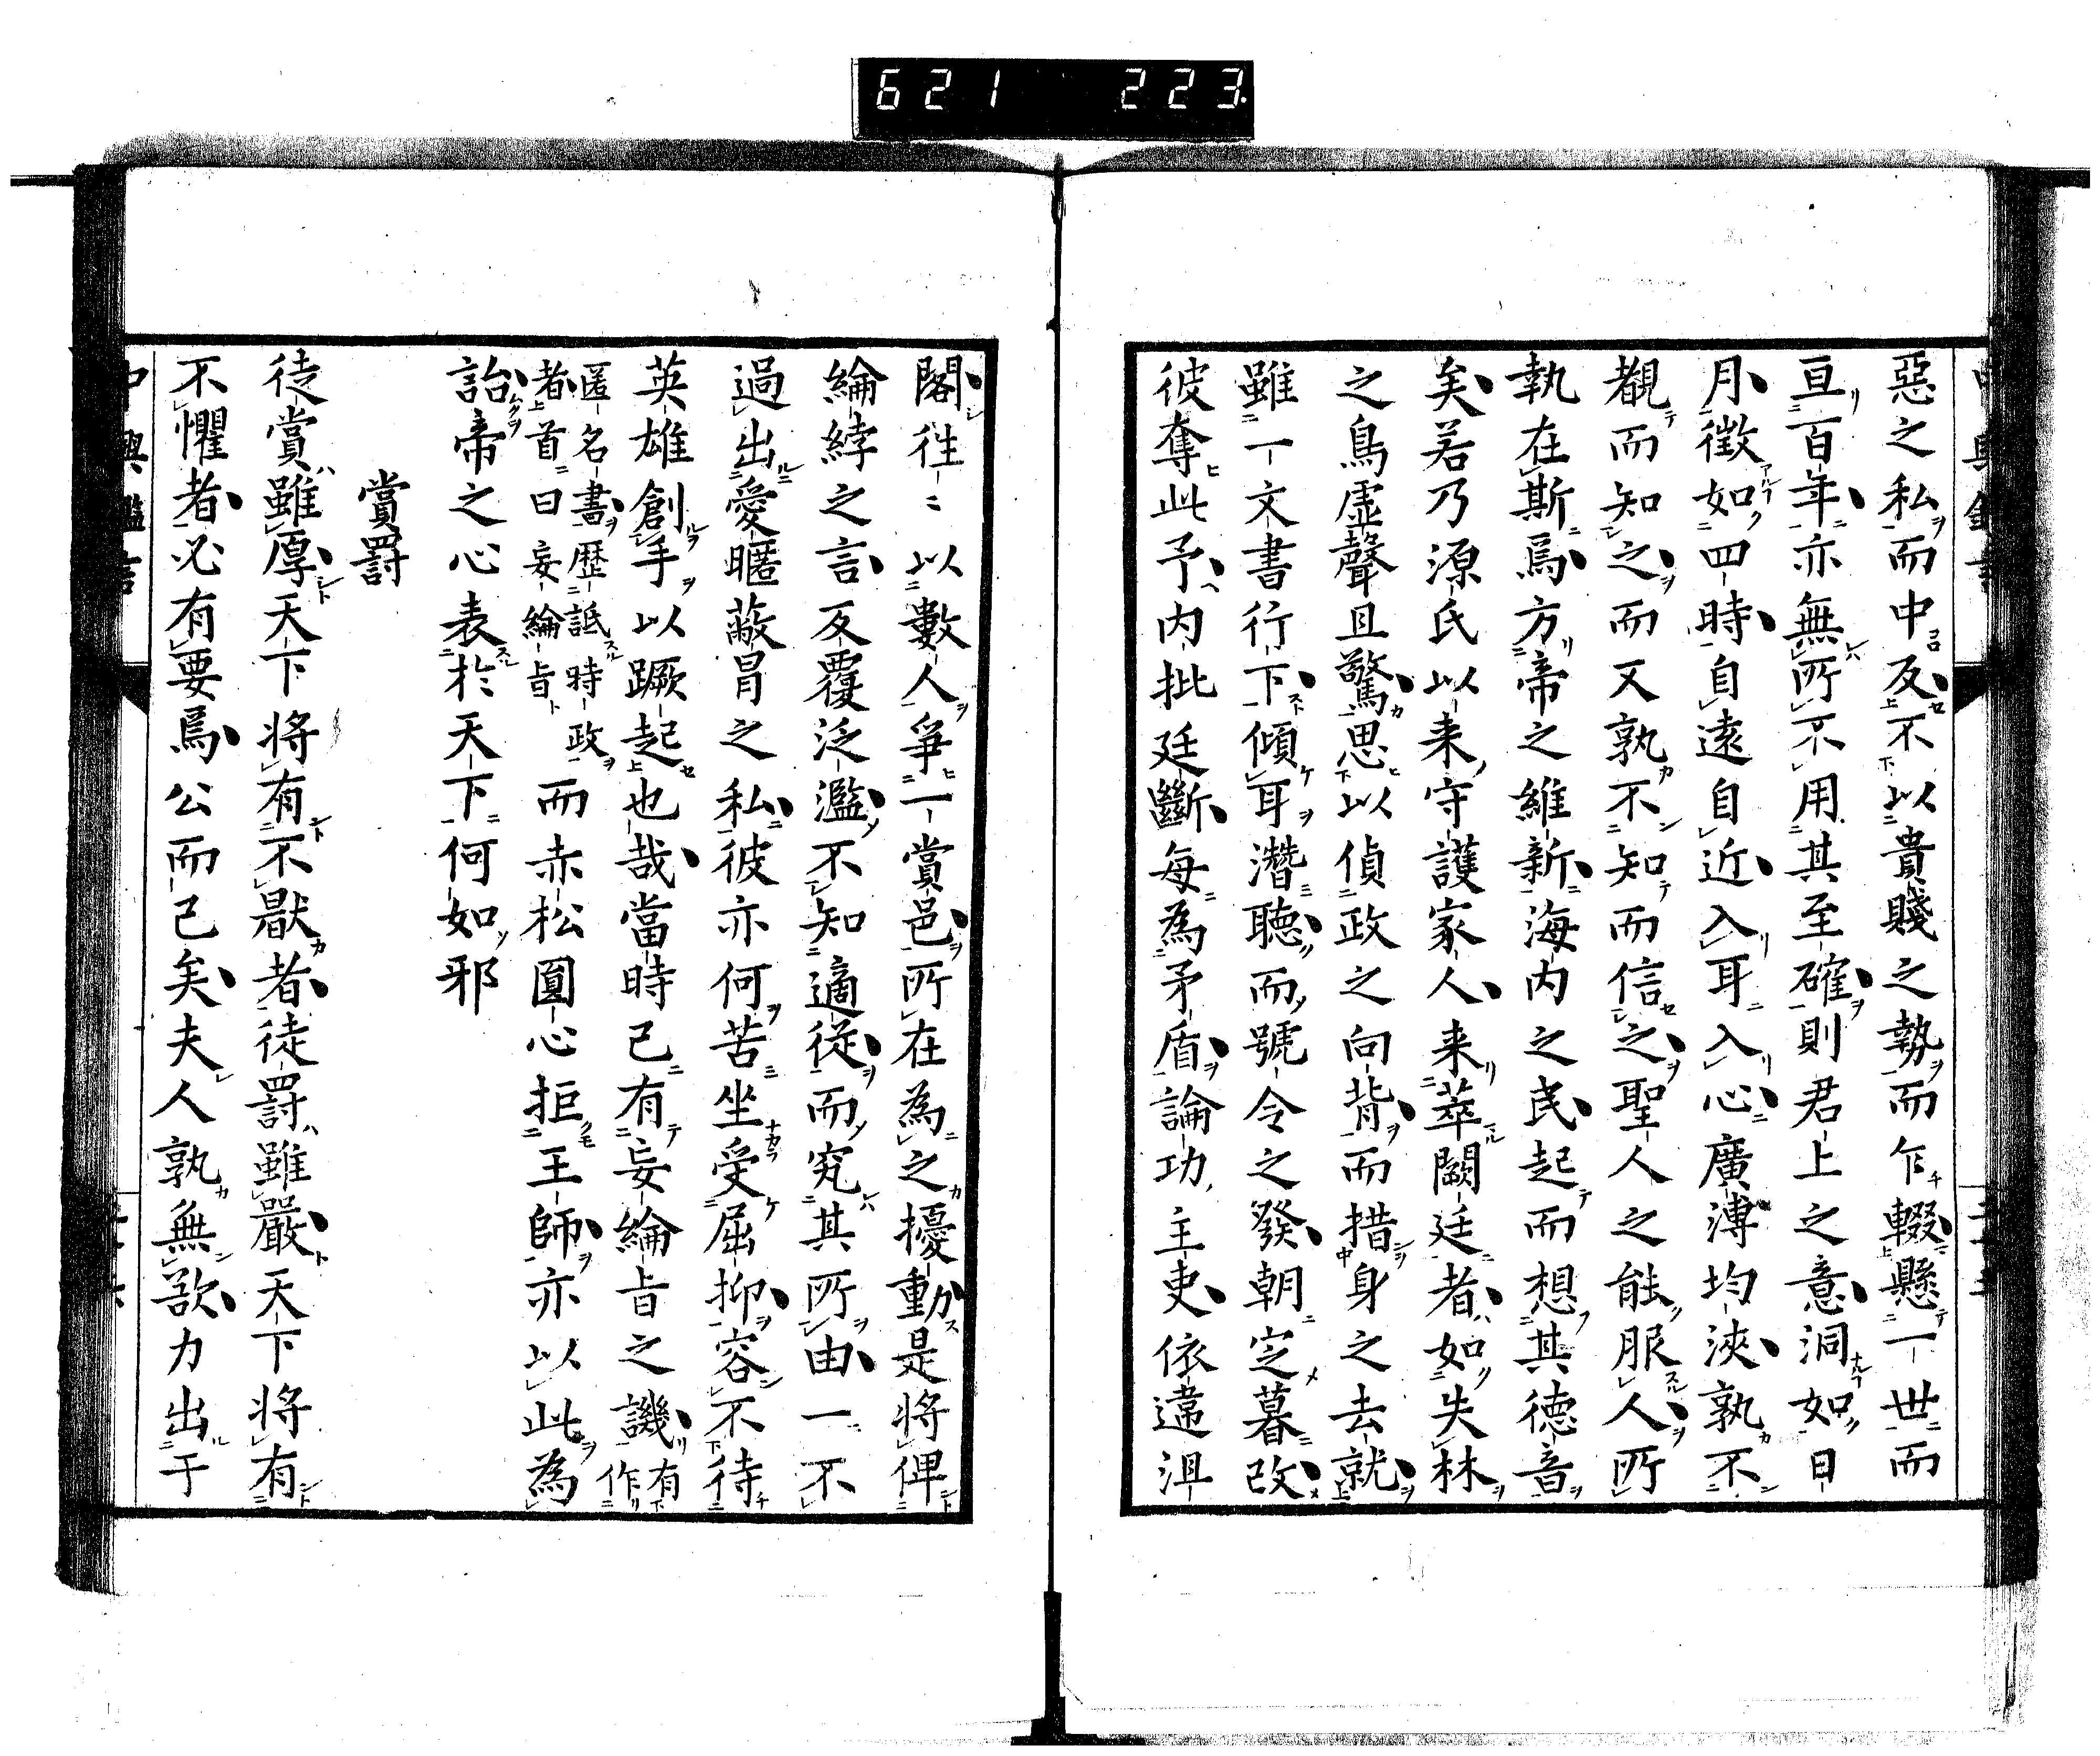 621 223
惡之私而中反不以貴賤之勢而乍輟懸一世而
亘百年亦無所不用其至確則君上之意洞如日
月徵如四時自遠自近入耳入心廣溥均浹孰不
覩而知之而又孰不知而信之聖人之能服人所
執在斯焉方帝之維新海内之民起而想其德音
矣若乃源氏以来守護家人来萃闕廷者如失林
之鳥虛聲且驚思以偵政之向背而措身之去就
雖一文書行下傾耳潛聽而號令之發朝定暮改
彼奪此予内批廷斷每為矛盾論功主吏依違沮
閣往〻以數人爭一賞邑所在為之擾動是將俾
綸綍之言反覆泛濫不知適從而究其所由一不
過出愛暱蔽冒之私彼亦何苦坐受屈抑容不待
英雄創手以蹶起也哉當時已有妄綸旨之譏有作
匿名書歷詆時政
者首曰妄綸旨而赤松圓心拒王師亦以此為
詒帝之心表於天下何如邪
賞罸
徒賞雖厚天下將有不厭者徒罸雖嚴天下將有
不懼者必有要焉公而已矣夫人孰無欲力出于
中興鑑言